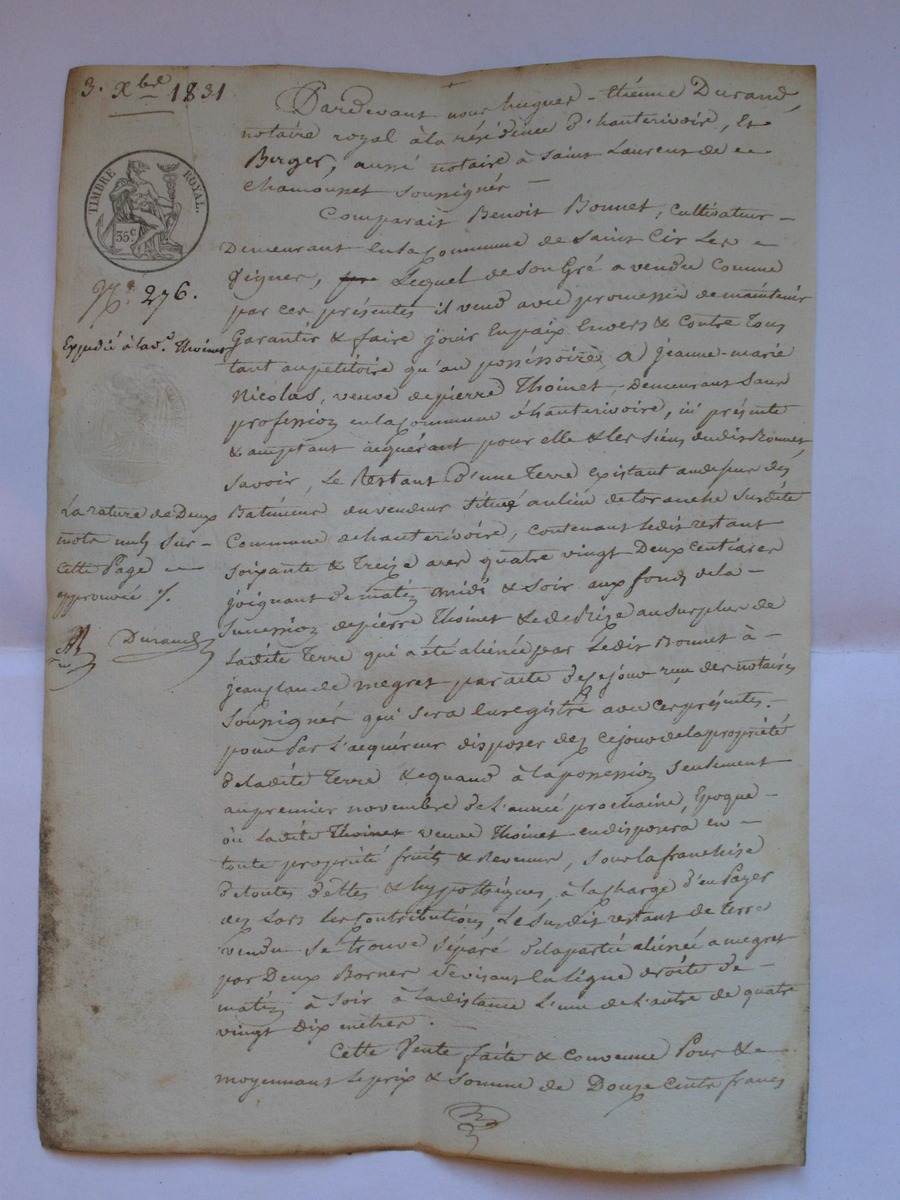 3. Xbre 1831
TIMBRE ROYAL.
35 c
No. 276.
Expédié à la ve. Thoinet
La rature de Deux
mots nuls sur
cette Page
approuvée ./.
Durand
Pardevant nous hugues-étienne Durand,
notaire royal à la résidence d'hauterivoire, Et
Berger, aussi notaire à Saint Laurent de
Chamousset soussignés —
Comparait Benoit Bonnet, Cultivateur
Demeurant en la Commune de Saint Cir Les
Vignes, Lequel de son Gré a vendu Comme
par ces présentes il vend avec promesse de maintenir
Garantir & faire jouir En paix Envers & Contre Tous
tant au pétitoire qu'au possessoire, a jeanne-marie
Nicolas, veuve de pierre Thoinet Demeurant Sans
profession en la Commune d'hauterivoire, ici présente
& acceptant acquérant pour elle & les siens dudit Bonnet,
Savoir, Le Restant d'une Terre existant au depur des
Batiments du vendeur Située au lieu de sus dite
Commune de hauterivoire, contenant Ledit restant
soixante & Treize ares quatre vingt Deux centiares
joignant de matin midi & soir aux fonds de la
succession de pierre Thoinet & de Bize au surplus de
Ladite Terre qui a été aliénée par Ledit Bonnet à
jean claude megret par acte de ce jour reçu des notaires
Soussignés qui sera Enregistré avec ces présentes. —
pour Par L'acquéreur disposer dez ce jour de la propriété
de ladite Terre & quand à la possession seulement
au premier novembre de l'année prochaine, Epoque
où Ladite Thoinet veuve Thoinet en disposera en
toute propriété fruits & Revenus, sous la franchise
de toutes dettes & hypothèques, à la charge d'en Payer
dez Lors les Contributions, Le susdit restant de terre
vendu se trouve séparé de la partie aliénée a megret
par Deux Bornes Devisant En Ligne droite de
matin à Soir à la distance L'une de L'autre de quatre
vingt Dix mètres. —
Cette Vente faite & Convenue Pour &
moyennant Le prix & Somme de Douze Cents francs